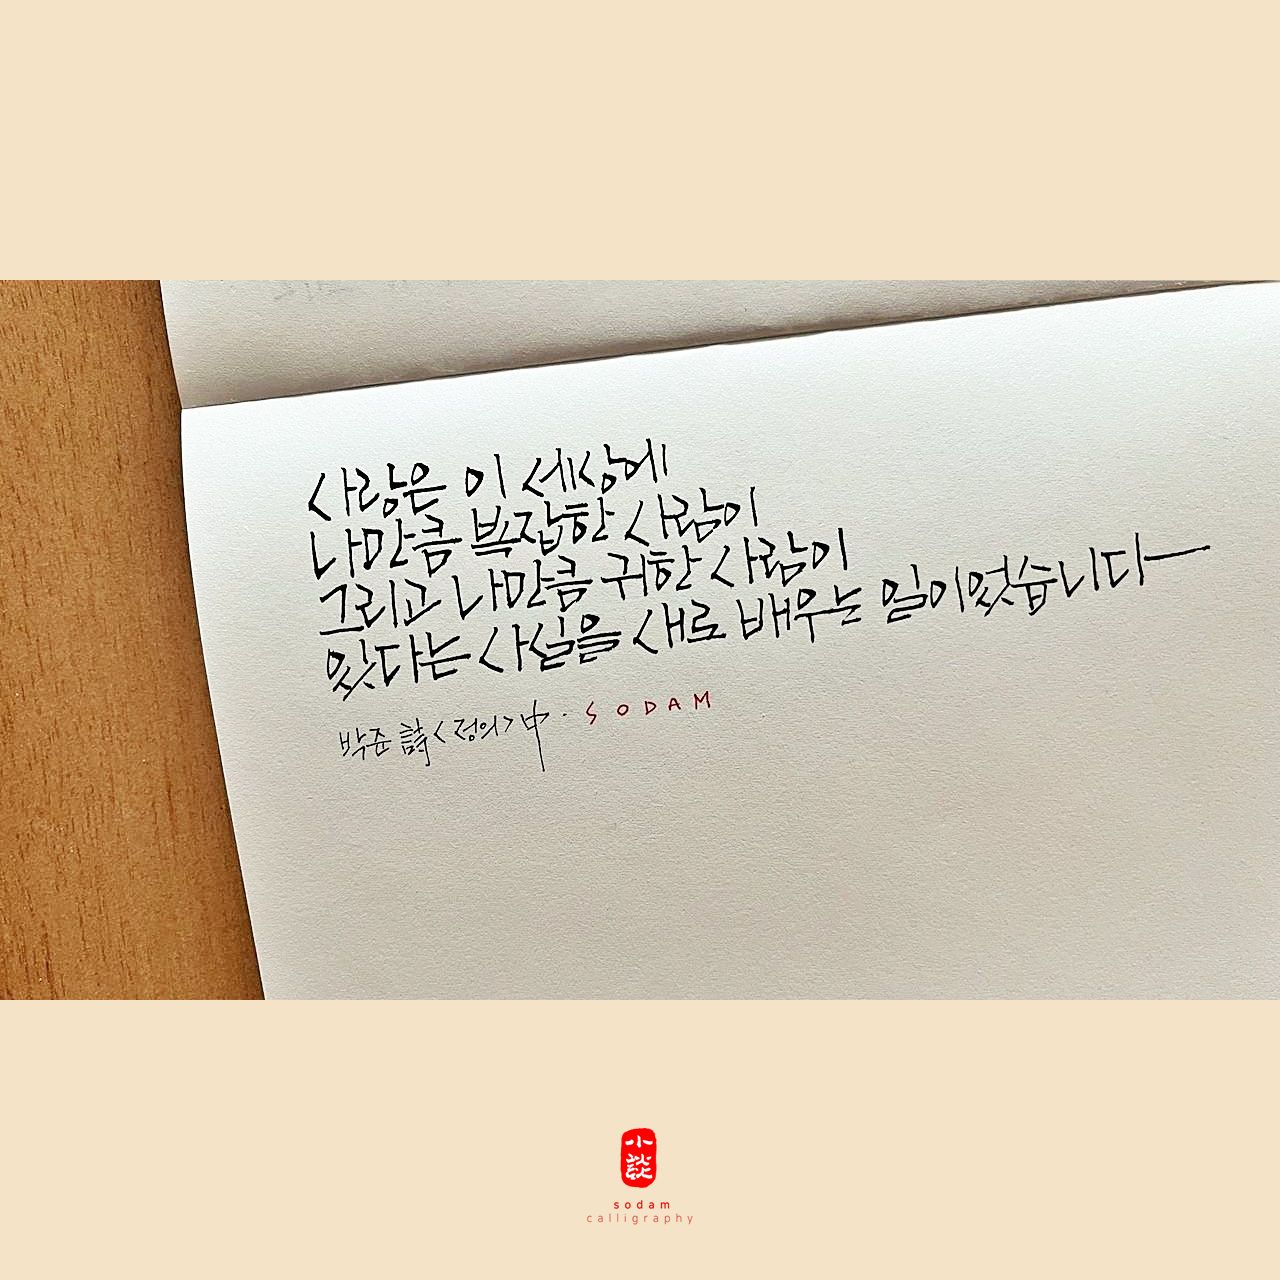 사랑은 이 세상에
나만큼 복잡한 사람이
그리고 나만큼 귀한 사람이
있다는 사실을 새로 배우는 일이었습니다
박준 詩 <정의> 中 · SODAM
小談
sodam
calligraphy